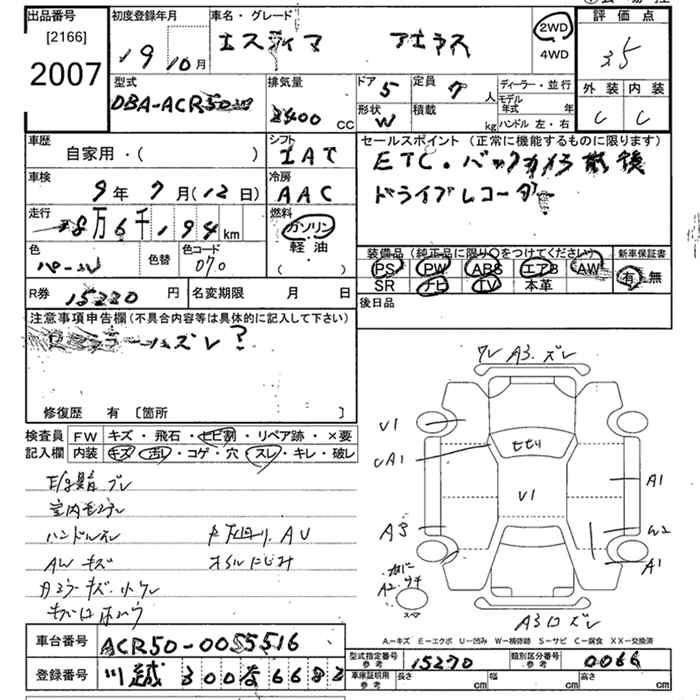 出品番号
[2166]
2007
初度登録年月
19 10月
車名・グレード
エスティマ アエラス
2WD
4WD
評価点
3.5
型式
DBA-ACR50W
排気量
2400 CC
ドア 5
定員 7 人
形状 W
積載 kg
ディーラー・並行
モデル年式 年
ハンドル 左・右
外装 内装
C C
車歴
自家用・( )
シフト
IAT
セールスポイント (正常に機能するものに限ります)
ETC. バックカメラ
ドライブレコーダー
車検
9年 7月 (12日)
冷房
AAC
走行
8万6千194 km
燃料
ガソリン
軽油
( ・ )
色
パール
色替
色コード
070
装備品 (純正品に限り○をつけてください)
PS PW ABS エアB AW
SR ナビ TV 本革
新車保証書
有・無
R券 15270 円
名変期限 月 日
後日品
注意事項申告欄 (不具合内容等は具体的に記入して下さい)
ズレ?
修復歴 有 [箇所 ]
検査員記入欄
FW キズ・飛石・ヒビ割・リペア跡・×要
内装 キズ・汚レ・コゲ・穴・スレ・キレ・破レ
ハンドルスレ
AWキズ
オイルにじみ
ワレ A3.ズレ
U1
UA1
ヒビワレ
U1
A1
A3
W2
A1
A2
スペア
A3ロズレ
A…キズ E…エクボ U…凹み W…補修跡 S…サビ C…腐食 XX…交換済
車台番号 ACR50-0055516
登録番号 川越 300 6682
型式指定番号 参考 15270
類別区分番号 参考 0066
車庫証明用 参考 長さ cm 幅 cm 高さ cm